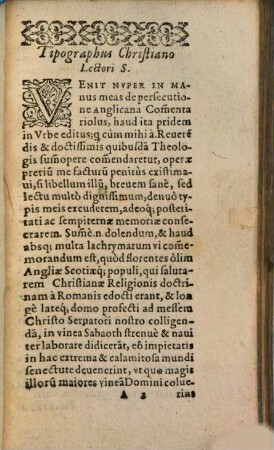 Tipographus Christiano
Lectori S.
VENIT NVPER IN MA
nus meas de persecutio
ne Anglicana Cōmenta
riolus, haud ita pridem
in Vrbe editus: q cùm mihi à Reuerē
dis & doctissimis quibusdā Theolo-
gis sumopere comendaretur, operæ
pretiū me facturū penitùs existima-
ui, si libellum illū, breuem sanè, sed
lectu multò dignissimum, denuò ty
pis meis excuderem, adeoq; posteri-
tati ac sempiternæ memoriæ conse-
crarem. Sumē.n. dolendum, & haud
absq; multa lachrymarum vi come-
morandum est, quòd florentes ólim
Angliæ Scotiæq; populi, qui saluta-
rem Christianæ Religionis doctri-
nam à Romanis edocti erant, & lon
gè latéq; domo profecti ad messem
Christo Seruatori nostro colligen-
dā, in vinea Sabaoth strenuè & naui
ter laborare didicerāt, eò impietatis
in hac extrema & calamitosa mundi
senectute deuenerint, vt quo magis
illorū maiores vineā Domini colue-
A 2 rint